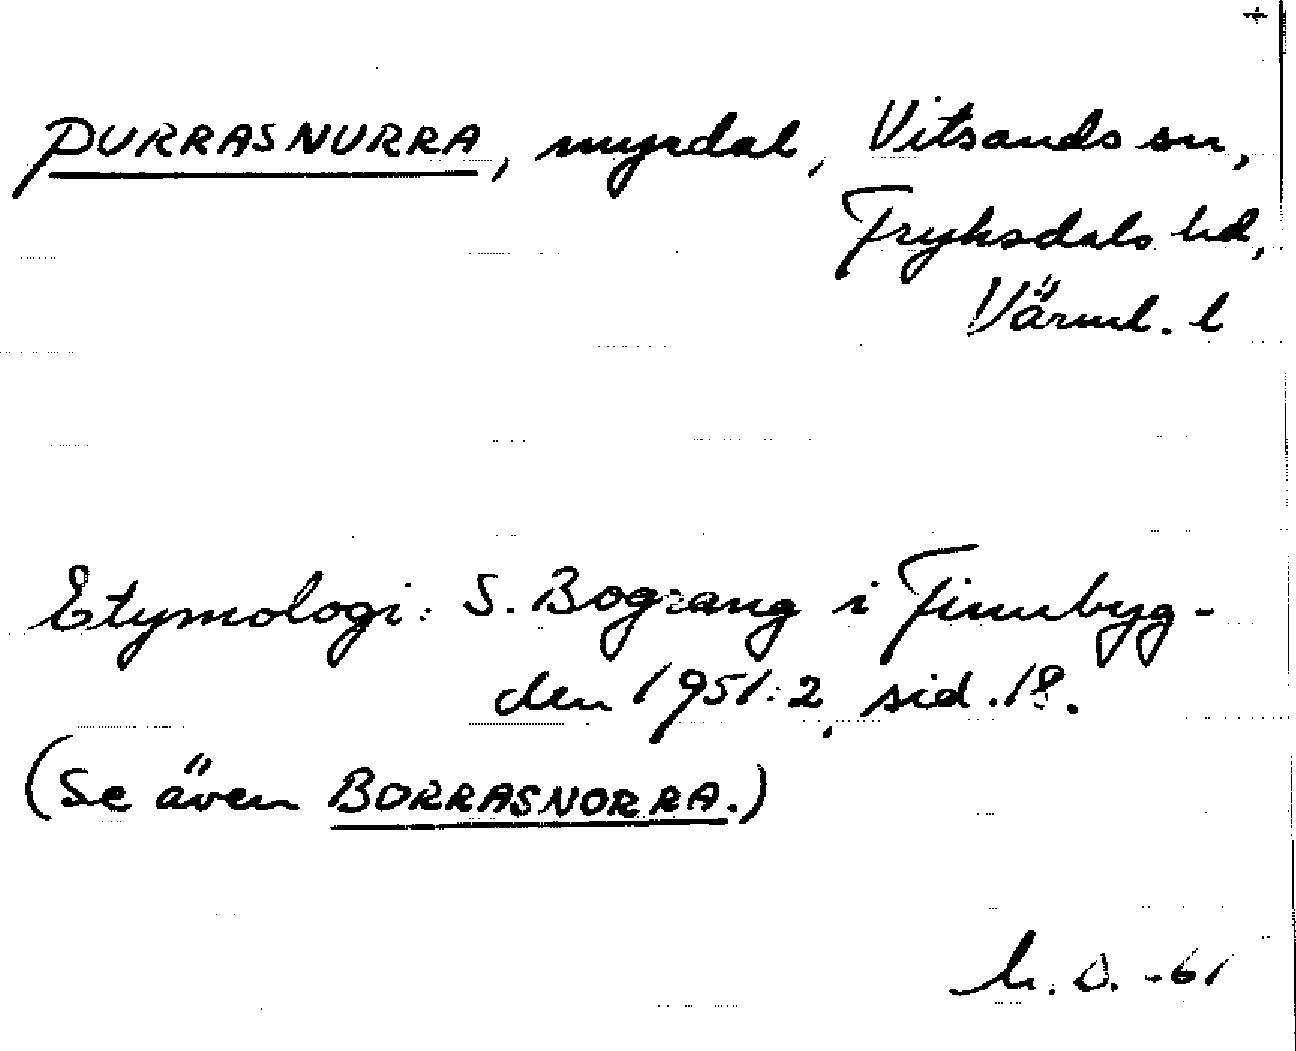 +
PURRASNURRA, myrdal, Vitsands sn,
Fryksdals hd,
Värml. l
Etymologi: S. Bograng i Finnbyg-
den 1951:2, sid. 18.
(Se även BORRASNORRA.)
-61